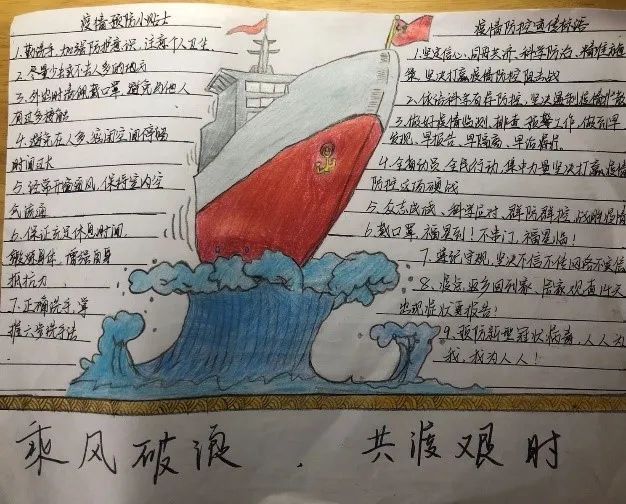 疫情预防小贴士
1.勤洗手,加强防护意识,注意个人卫生。
2.尽量少去或不去人多的地方
3.外出时要佩戴口罩,避免与他人
有过多接触
4.避免在人多、密闭空间停留
时间过长
5.经常开窗通风,保持室内空
气流通
6.保证充足休息时间,
锻炼身体,增强自身
抵抗力
7.正确洗手,掌
握六步洗手法
疫情防控宣传标语
1.坚定信心、同舟共济、科学防治、精准施
策,坚决打赢疫情防控阻击战
2.依法科学有序防控,坚决遏制疫情扩散
3.做好疫情监测、排查、预警工作,做到早
发现、早报告、早隔离、早治疗。
4.全面动员,全民行动,集中力量坚决打赢疫情
防控这场硬战
5.众志成城、科学应对、群防群控,战胜疫情
6.戴口罩,福星到!不串门,福星临!
7.谨记守规,坚决不信不传网络不实信
8.疫点返乡回到家,居家观查14天
出现症状要报告!
9.预防新型冠状病毒,人人为
我,我为人人!
乘风破浪 . 共渡艰时